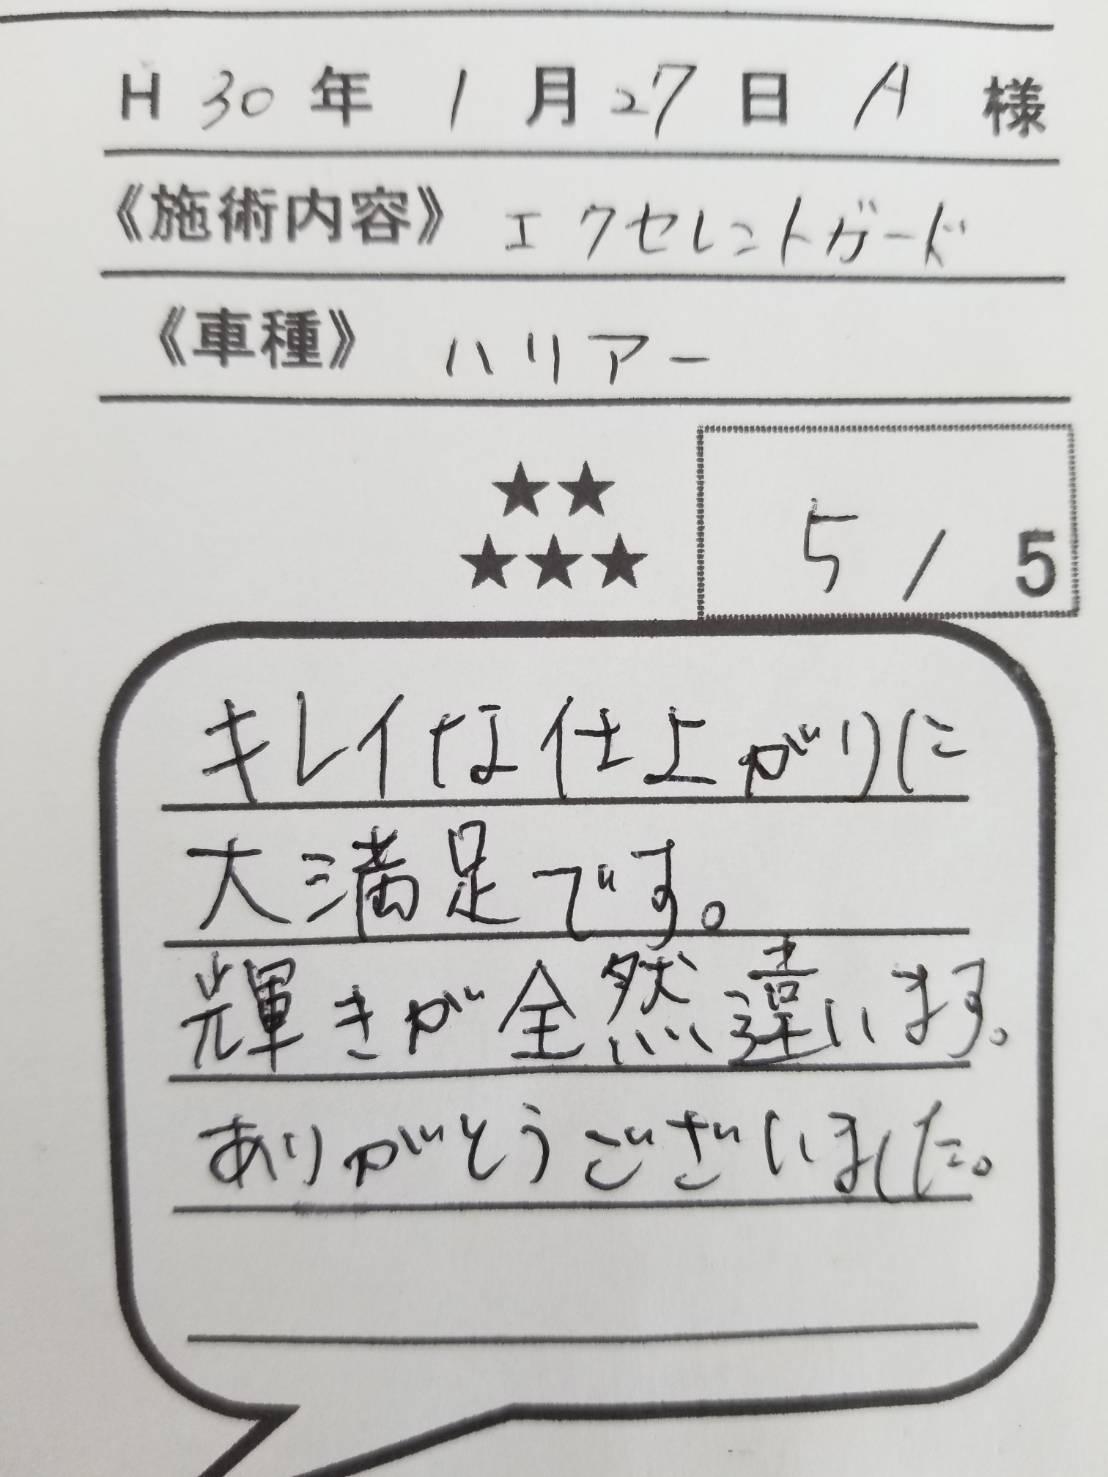 H 30 年 1 月 27 日 A 様
《施術内容》 エクセレントガード
《車種》 ハリアー
★★
★★★
5 / 5
キレイな仕上がりに
大満足です。
輝きが全然違います。
ありがとうございました。